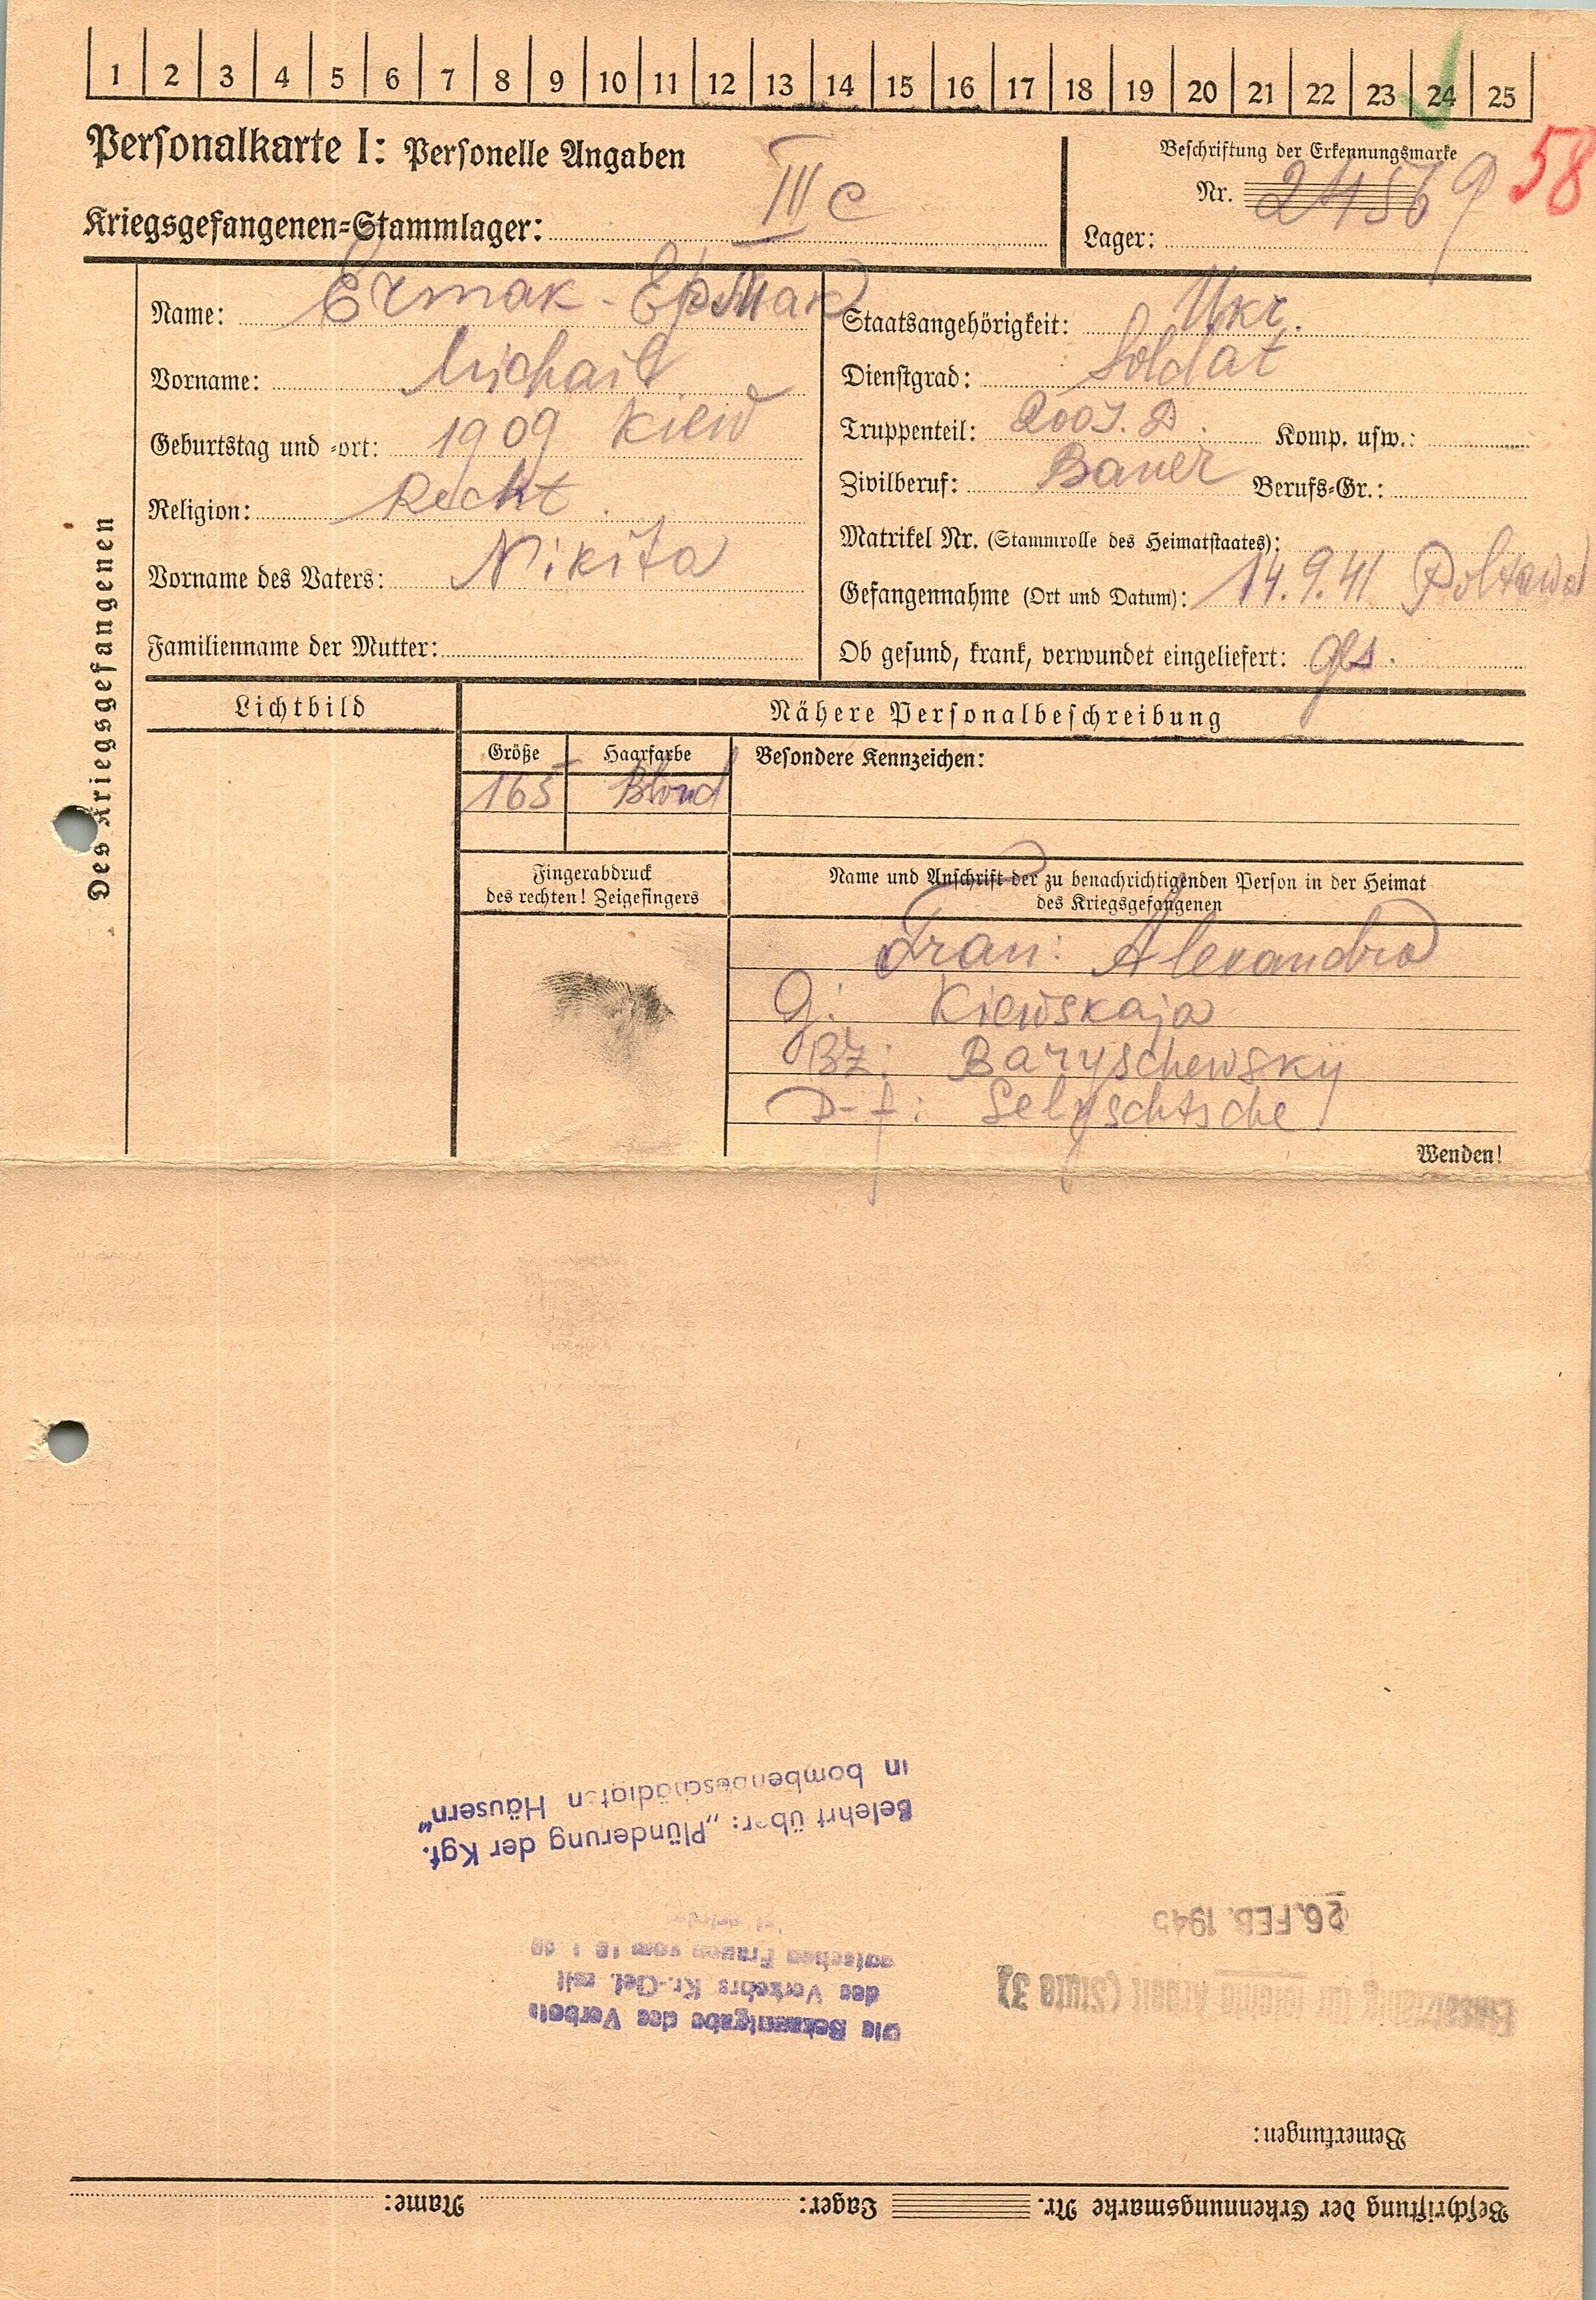 1 2 3 4 5 6 7 8 9 10 11 12 13 14 15 16 17 18 19 20 21 22 23 24 25
Personalkarte I: Personelle Angaben
Kriegsgefangenen=Stammlager: III C
Beschriftung der Erkennungsmarke
Nr. 24569
58
Lager:
Des Kriegsgefangenen
Name: Ermak - Ермак
Vorname: Michail
Geburtstag und =ort: 1909 Kiew
Religion: Recht.
Vorname des Vaters: Nikita
Familienname der Mutter:
Staatsangehörigkeit: Ukr.
Dienstgrad: Soldat
Truppenteil: 200 J. D. Komp. usw.:
Zivilberuf: Bauer Berufs=Gr.:
Matrikel Nr. (Stammrolle des Heimatstaates):
Gefangennahme (Ort und Datum): 14.9.41 Poltawa
Ob gesund, krank, verwundet eingeliefert: ges.
Lichtbild
Nähere Personalbeschreibung
Größe Haarfarbe Besondere Kennzeichen:
165 Blond
Fingerabdruck
des rechten! Zeigefingers
Name und Anschrift der zu benachrichtigenden Person in der Heimat
des Kriegsgefangenen
Frau: Alexandra
G: Kiewskaja
Bz: Baryschewskij
D-f: Selyschtsche
Wenden!
Beschriftung der Erkennungsmarke Nr. Lager: Name:
Bemerkungen:
Einsatzfähig für leichte Arbeit (Stufe 3)
26. FEB. 1945
Die Bekanntgabe des Verbots
des Verkehrs Kr.-Gef. mit
deutschen Frauen vom
Belehrt über: „Plünderung der Kgf.
in bombenbeschädigten Häusern"